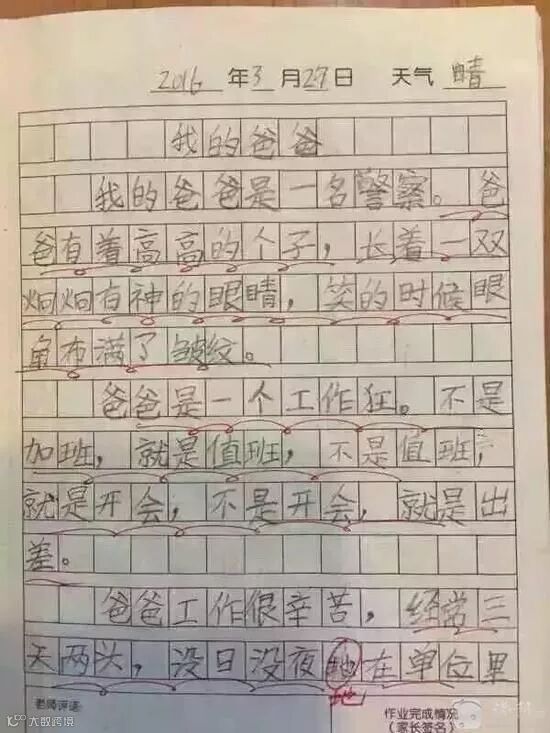 2016 年3月29日 天气 晴
我的爸爸
我的爸爸是一名警察。爸
爸有着高高的个子，长着一双
炯炯有神的眼睛，笑的时候眼
角布满了皱纹。
爸爸是一个工作狂。不是
加班，就是值班，不是值班，
就是开会，不是开会，就是出
差。
爸爸工作很辛苦，经常三
天两头，没日没夜地在单位里
地
老师评语
作业完成情况
（家长签名）
大数跨境